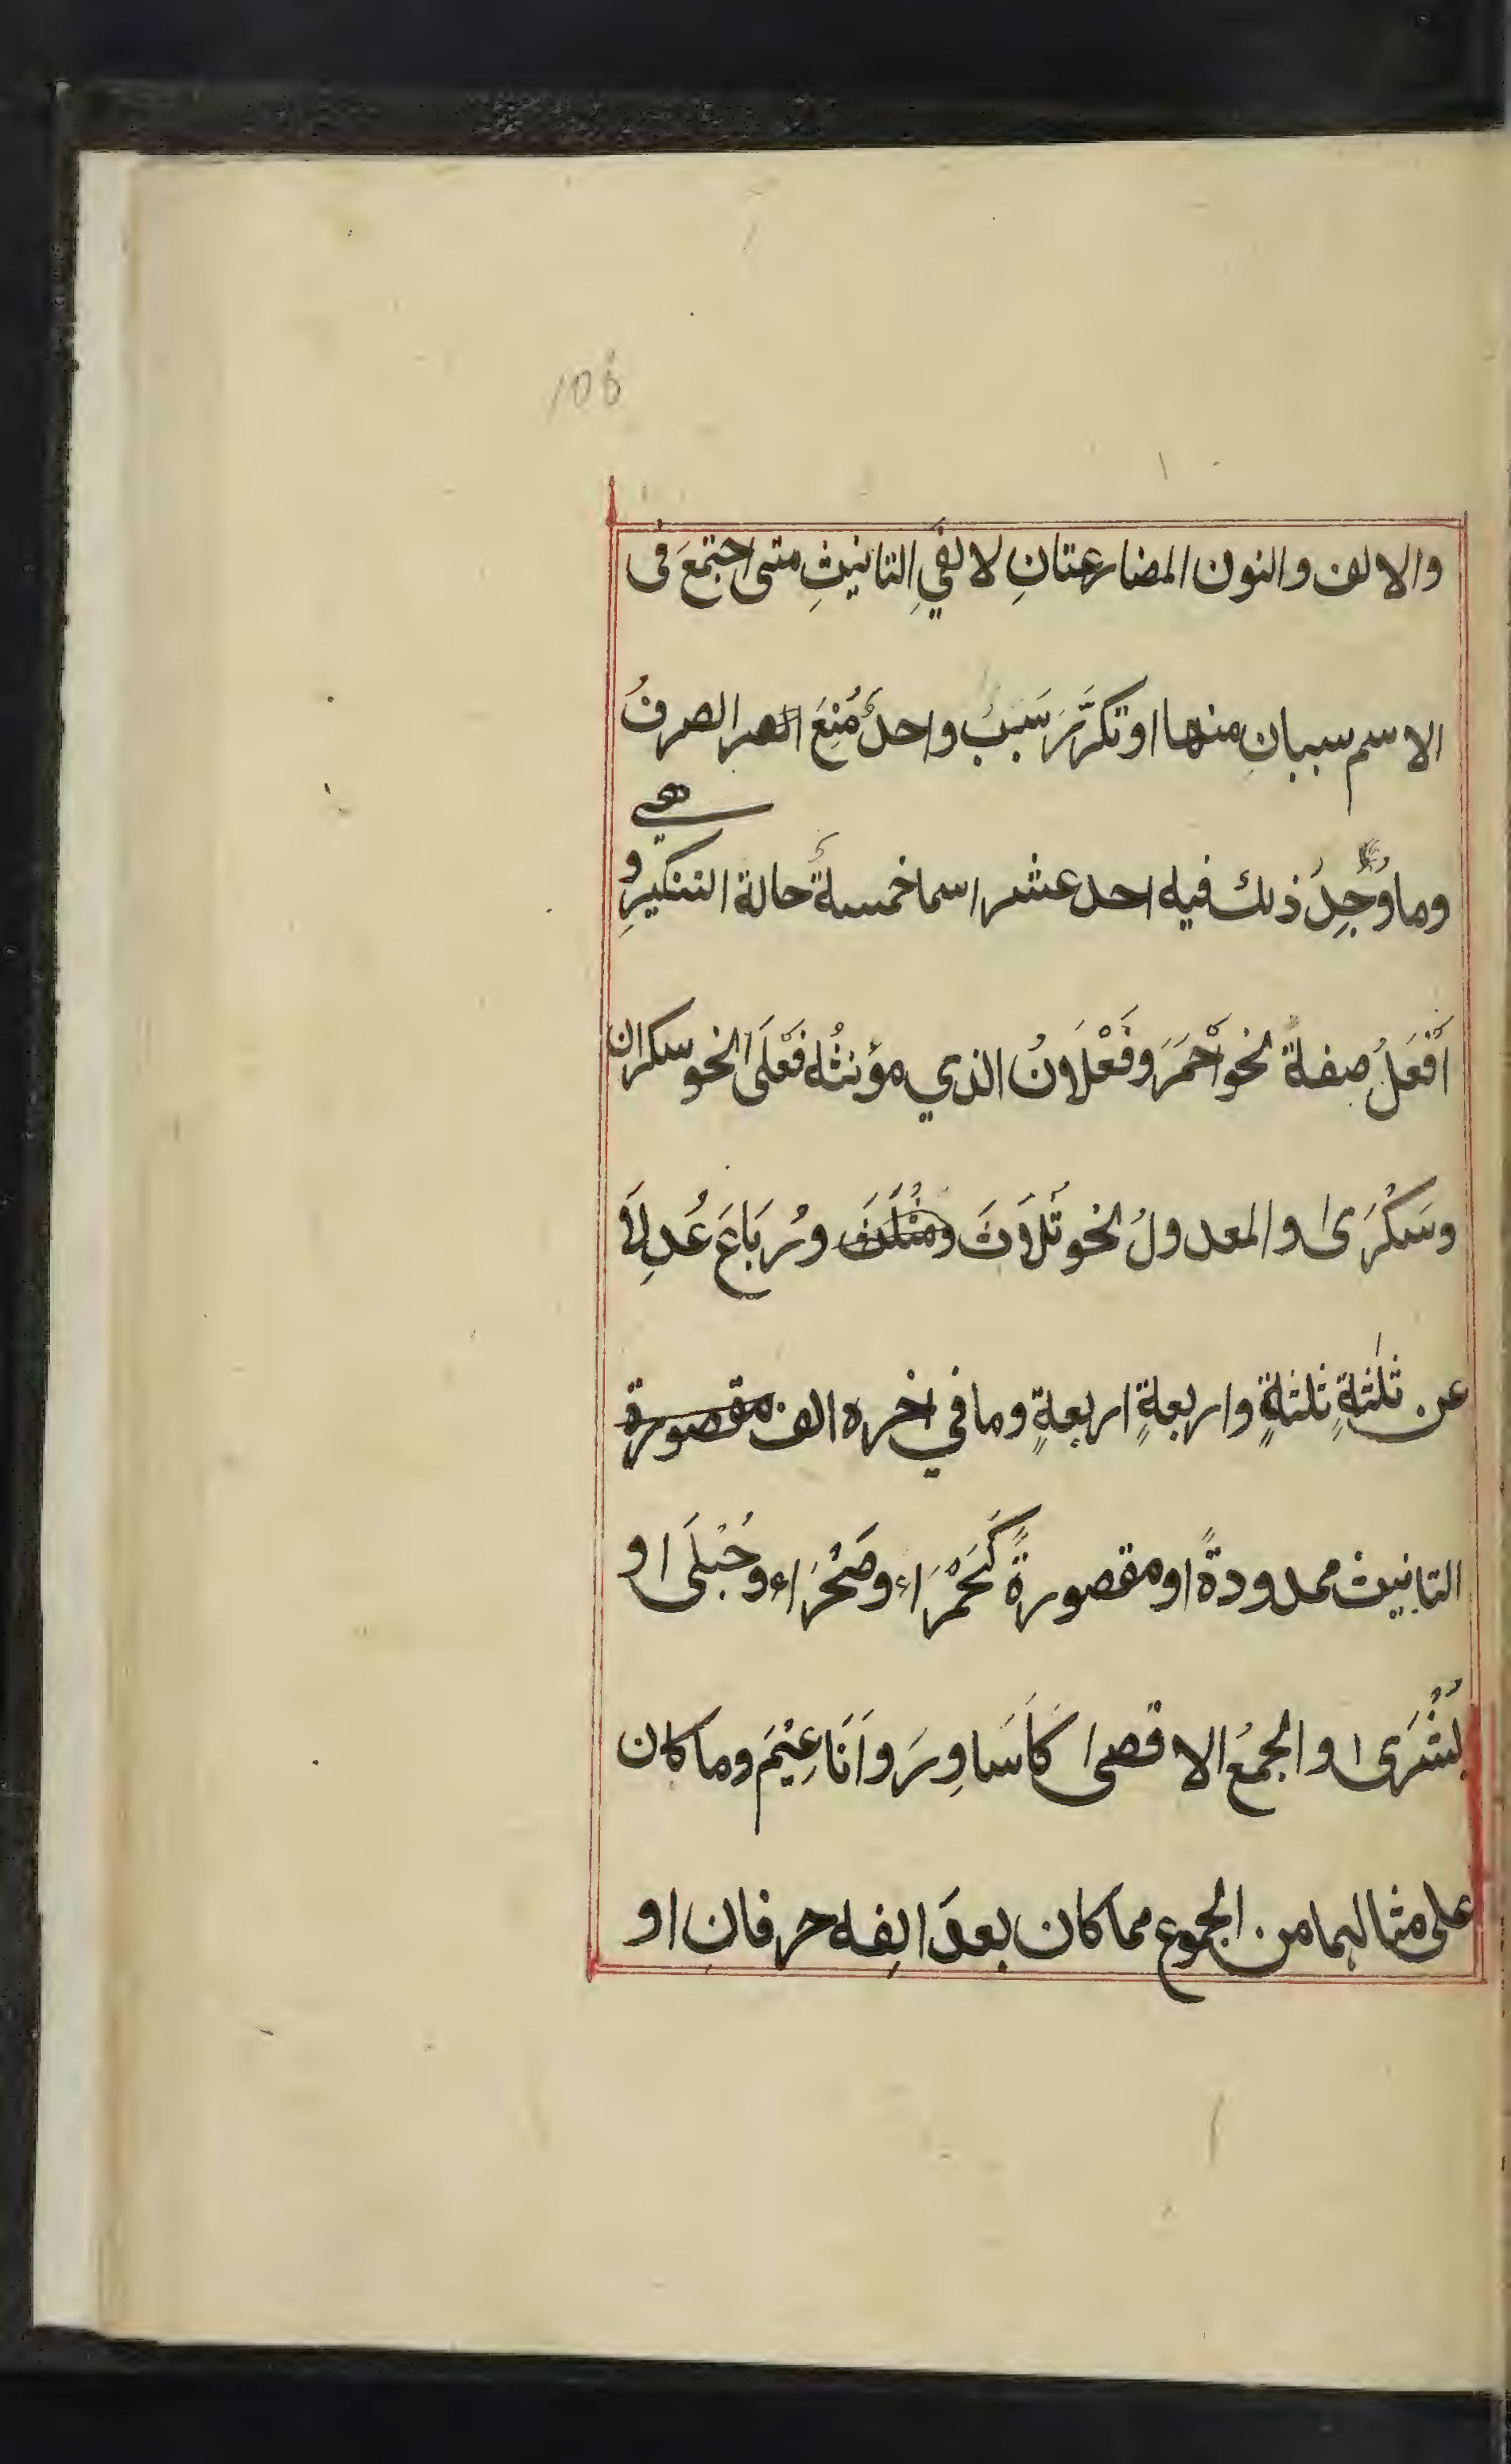 106
والالف والنون المضارعتانِ لالفيِ التانيثِ متى اجتمعَ فى
الاسم سببانِ منها اوتكرَّرَ سَبَبٌ واحدٌ مُنِعَ الصر الصرفُ
هى
وما وُجِدَ ذلك فيه احد عشر اسما خمسةٌ حالة التنكيرِ و
اَفْعَلُ صِفةً نحو اَحْمَرَ وفَعْلَانُ الذي مؤنثُه فَعْلَى نحو سكران
وسَكْرَى والمعدولُ نحو ثُلَاثَ ومَثْلَثَ ورُبَاعَ عُدِلَا
عن ثلٰثةِ ثلثةٍ واربعةٍ اربعةٍ وما في اخره الف مقصورة
التانيث ممدودةً اومقصورةً كَحَمْرَاء وصَحْرَاء وحُبْلَى او
بُشْرَى والجمعُ الاقصى كاَسَاوِرَ واَنَاعِيْمَ وما كان
على مثالهما من الجموع مما كان بعدَ الِفه حرفانِ او